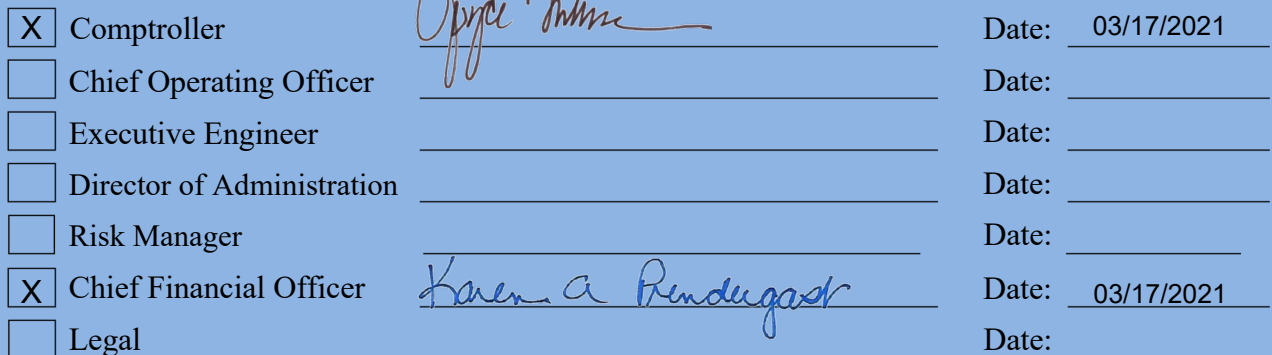 X Comptroller Date: 03/17/2021
Chief Operating Officer Date:
Executive Engineer Date:
Director of Administration Date:
Risk Manager Date:
X Chief Financial Officer Karen A Prendergast Date: 03/17/2021
Legal Date: